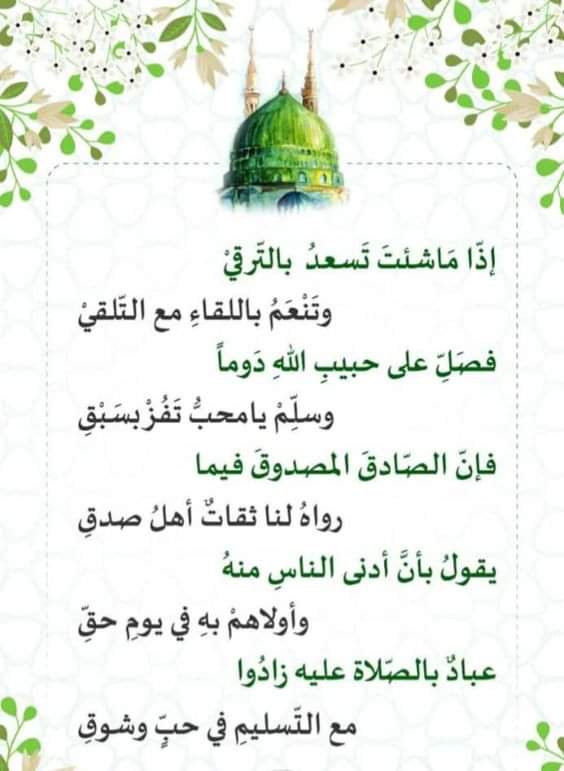 إذّا مَاشئتَ تَسعدُ بالتّرقيْ
وتَنْعَمُ باللقاءِ مع التّلقيْ
فصَلِّ على حبيبِ اللهِ دَوماً
وسلِّمْ يامحبُّ تَفُزْ بسَبْقِ
فإنّ الصّادقَ المصدوقَ فيما
رواهُ لنا ثقاتٌ أهلُ صدقِ
يقولُ بأنَّ أدنى الناسِ منهُ
وأولاهمْ بهِ في يومِ حقِّ
عبادٌ بالصّلاة عليه زادُوا
مع التّسليمِ في حبٍّ وشوقِ